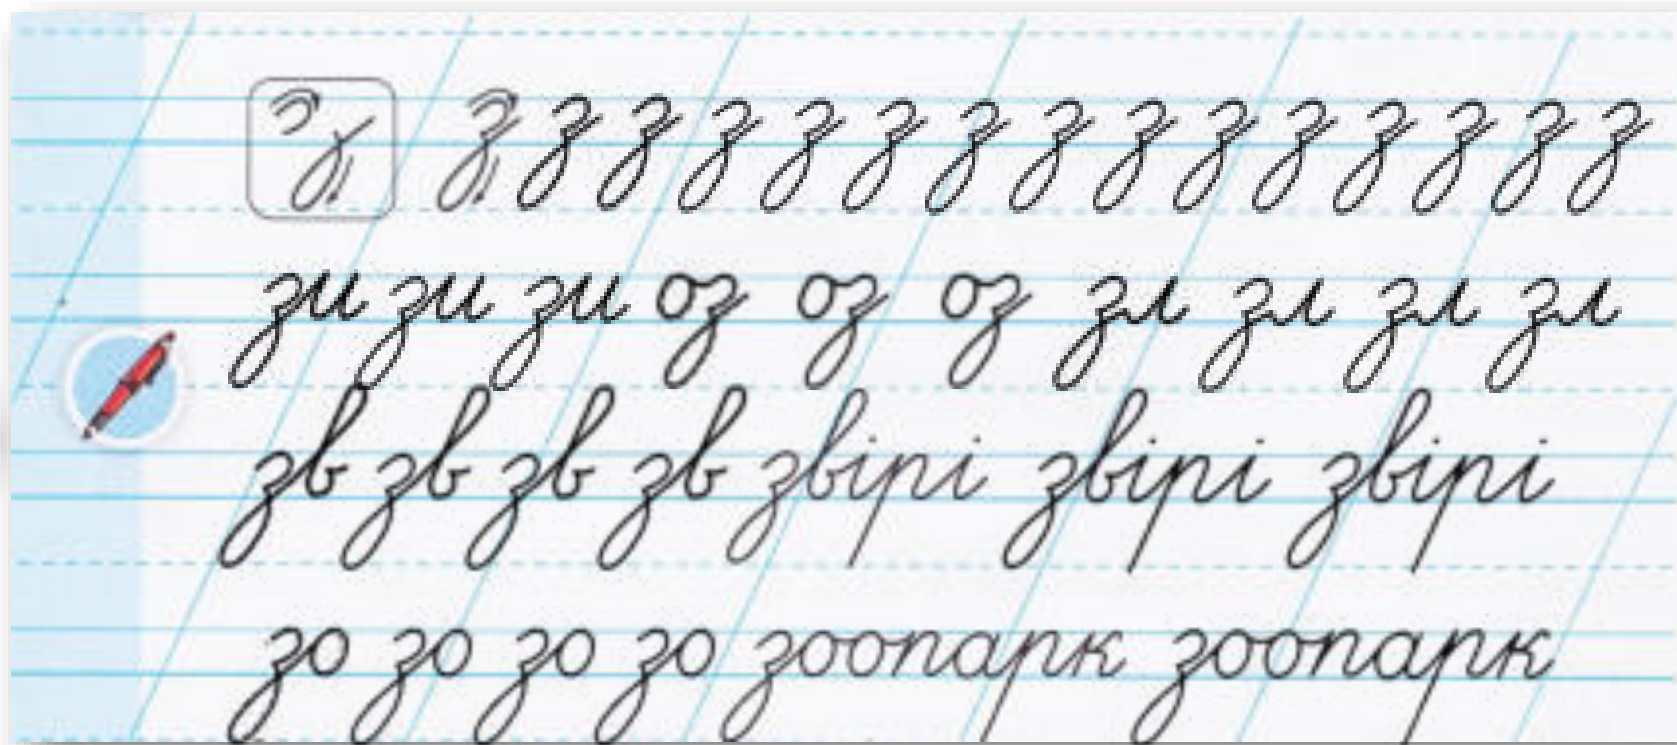 з з з з з з з з з з з з з з з з
зи зи зи оз оз оз зл зл зл зл
зв зв зв зв звірі звірі звірі
зо зо зо зо зоопарк зоопарк